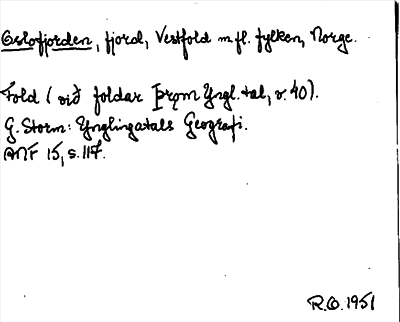 Oslofjorden, fjord, Vestfold m.fl. fylken, Norge.
Fold (við foldar þrǫm Yngl.tal, v. 40).
G. Storm: Ynglingatals Geografi.
ANF 15, s. 117.
R.O. 1951